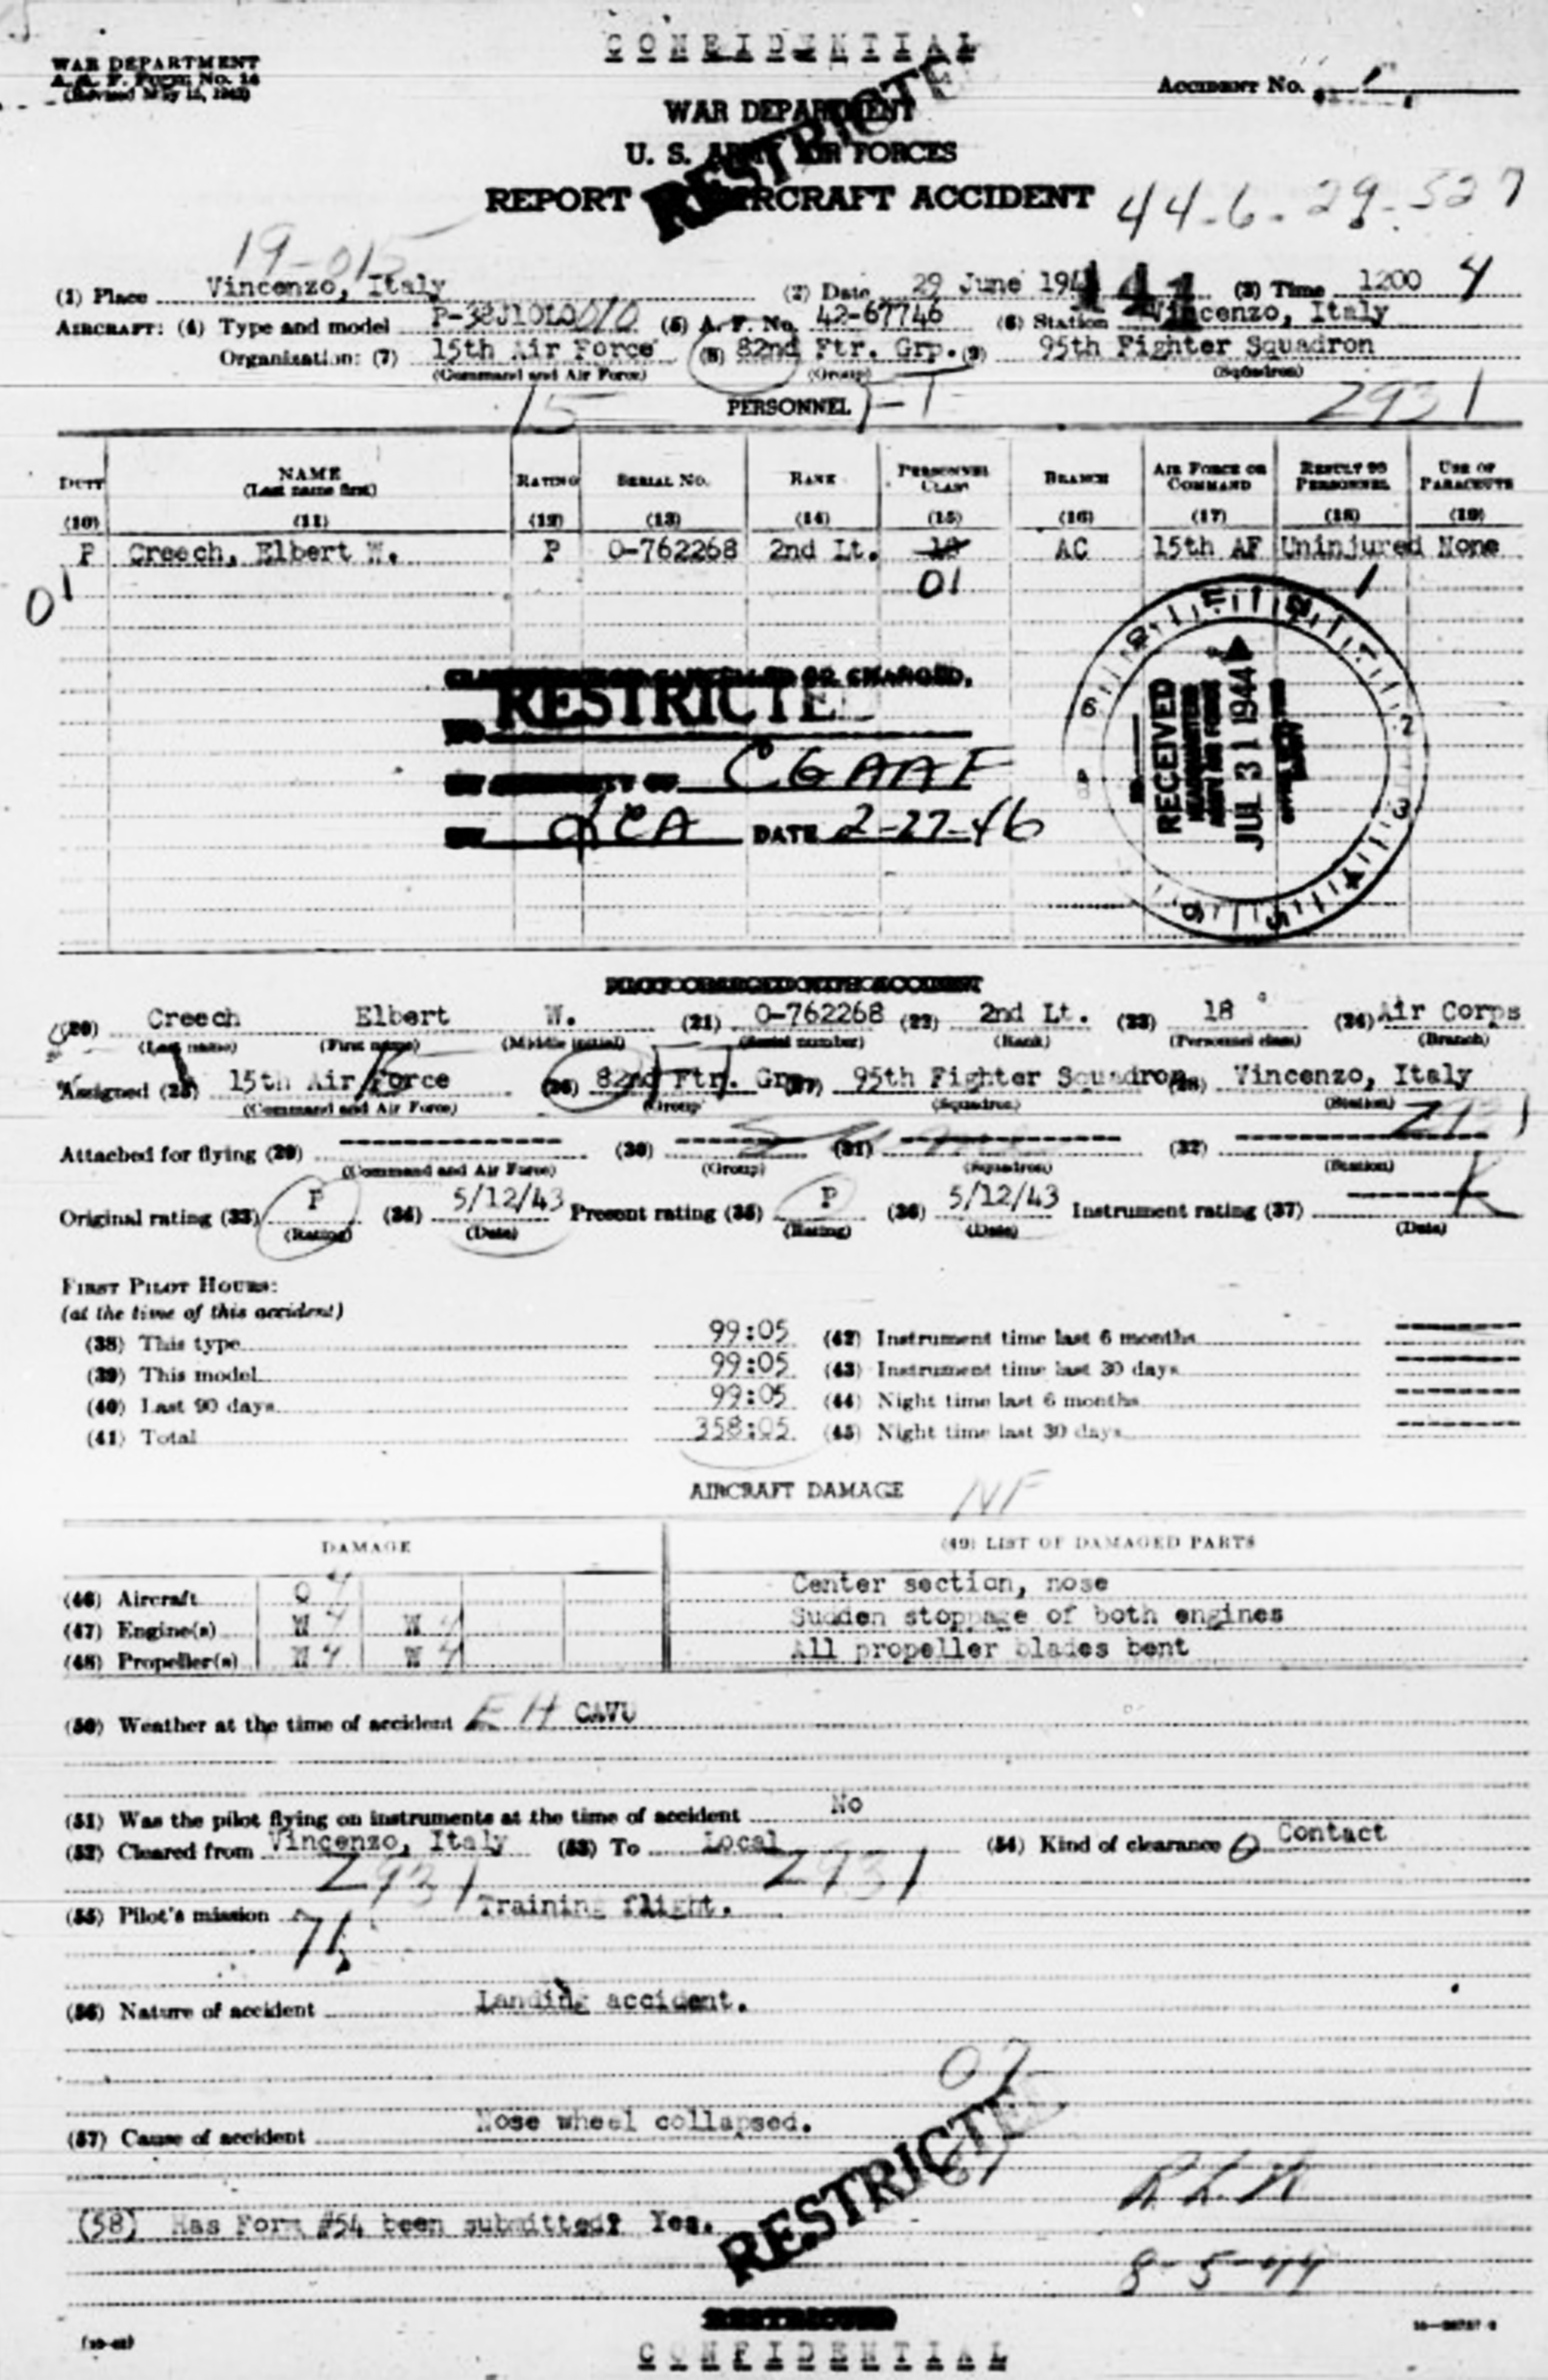 CONFIDENTIAL
WAR DEPARTMENT
A. A. F. Form No. 14
ACCIDENT No.
WAR DEPARTMENT
U. S. ARMY AIR FORCES
RESTRICTED
REPORT AIRCRAFT ACCIDENT 44-6-29-527
(1) Place Vincenzo, Italy (2) Date 29 June 194 (3) Time 1200 4
AIRCRAFT: (4) Type and model P-38J10LO 010 (5) A. F. No. 42-67746 (6) Station Vincenzo, Italy
Organization: (7) 15th Air Force (8) 82nd Ftr. Grp. (9) 95th Fighter Squadron
(Command and Air Force) (Group) (Squadron)
15 PERSONNEL 2931
DUTY NAME (Last name first) RATING SERIAL NO. RANK PERSONNEL CLASS BRANCH AIR FORCE OR COMMAND RESULT TO PERSONNEL USE OF PARACHUTE
(10) (11) (12) (13) (14) (15) (16) (17) (18) (19)
P Creech, Elbert W. P O-762268 2nd Lt. 18 AC 15th AF Uninjured None
01 01 1
OR CHANGED.
RESTRICTE
CGAAF
DATE 2-27-46
RECEIVED
JUL 31 1944
PILOT CHARGED WITH ACCIDENT
(20) Creech Elbert W. (21) O-762268 (22) 2nd Lt. (23) 18 (24) Air Corps
(Last name) (First name) (Middle initial) (Serial number) (Rank) (Personnel class) (Branch)
Assigned (25) 15th Air Force (26) 82nd Ftr. Grp. (27) 95th Fighter Squadron (28) Vincenzo, Italy
(Command and Air Force) (Group) (Squadron) (Station)
Attached for flying (29) (30) (31) (32)
(Command and Air Force) (Group) (Squadron) (Station)
Original rating (33) P (34) 5/12/43 Present rating (35) P (36) 5/12/43 Instrument rating (37)
(Rating) (Date) (Rating) (Date) (Date)
FIRST PILOT HOURS:
(at the time of this accident)
(38) This type 99:05 (42) Instrument time last 6 months
(39) This model 99:05 (43) Instrument time last 30 days
(40) Last 90 days 99:05 (44) Night time last 6 months
(41) Total 358:05 (45) Night time last 30 days
AIRCRAFT DAMAGE NF
DAMAGE (49) LIST OF DAMAGED PARTS
(46) Aircraft 4 Center section, nose
(47) Engine(s) W 4 W 4 Sudden stoppage of both engines
(48) Propeller(s) W 4 W 4 All propeller blades bent
(50) Weather at the time of accident CAVU
(51) Was the pilot flying on instruments at the time of accident No
(52) Cleared from Vincenzo, Italy (53) To Local (54) Kind of clearance Contact
2931 2931
(55) Pilot's mission Training flight.
(56) Nature of accident Landing accident.
(57) Cause of accident Nose wheel collapsed.
RESTRICTE
(58) Has Form #54 been submitted? Yes.
8-5-44
RESTRICTED
CONFIDENTIAL